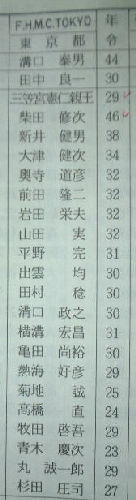 F.H.M.C.TOKYO 年
東京都 令
溝口 泰男 44
田中 良一 30
三笠宮憲仁親王 29
柴田 修次 46
新井 健男 38
大津 健次 34
奥寺 道彦 32
前田 隆二 32
岩田 栄夫 32
山田 実 32
平野 完 31
出雲 均 30
田村 稔 30
溝口 政之 30
横溝 宏昌 31
亀田 尚裕 30
熱海 好彦 29
菊地 誠 25
高橋 直 24
牧田 啓吾 29
青木 慶次 23
丸 誠一郎 29
杉田 庄司 27